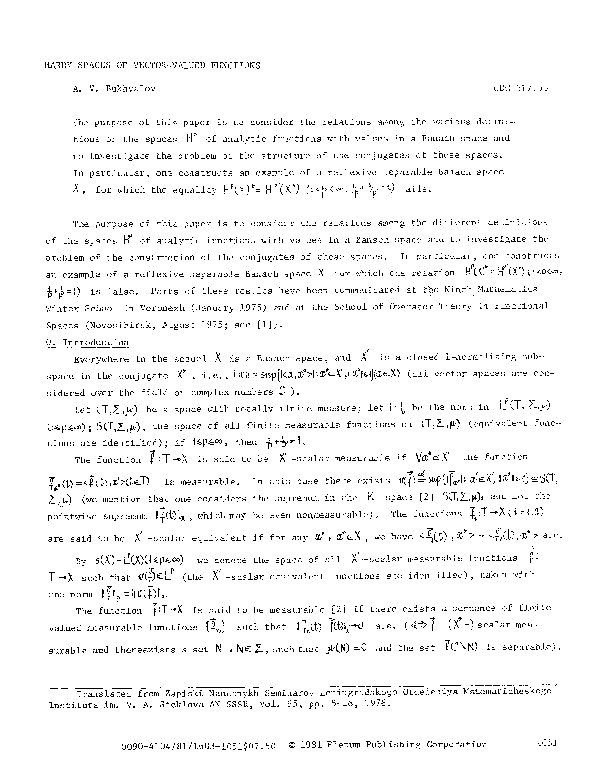 HARDY SPACES OF VECTOR-VALUED FUNCTIONS
A. V. Bukhvalov UDC 517.
The purpose of this paper is to consider the relations among the various defini-
tions of the spaces H^p of analytic functions with values in a Banach space and
to investigate the problem of the structure of the conjugates of these spaces.
In particular, one constructs an example of a reflexive separable Banach space
X, for which the equality fails.
The purpose of this paper is to consider the relations among the different definitions
of the spaces H^p of analytic functions with values in a Banach space and to investigate the
problem of the construction of the conjugates of these spaces. In particular, one constructs
an example of a reflexive separable Banach space X for which the relation
is false. Parts of these results have been communicated at the Ninth Mathematics
Winter School in Voronezh (January 1975) and at the School of Operator Theory in Functional
Spaces (Novosibirsk, August 1975; see [1]).
0. Introduction
Everywhere in the sequel X is a Banach space, and X' is a closed 1-normalizing sub-
space in the conjugate X*, i.e., (all vector spaces are con-
sidered over the field of complex numbers C).
Let (T,Σ,μ) be a space with totally finite measure; let be the norm in L^p(T,Σ,μ)
(1≤p≤∞); S(T,Σ,μ), the space of all finite measurable functions on (T,Σ,μ) (equivalent func-
tions are identified); if 1≤p≤∞, then 1/p+1/p'=1.
The function f:T→X is said to be X'-scalar measurable if ∀x'∈X' the function
is measurable. In this case there exists
(we mention that one considers the supremum in the K space [2] S(T,Σ,μ), and not the
pointwise supremum, which may be even nonmeasurable). The functions
are said to be X'-scalar equivalent if for any x'∈X', we have a.e.
By we denote the space of all X'-scalar measurable functions f:
T→X such that (the X'-scalar equivalent functions are identified), taken with
the norm
The function f:T→X is said to be measurable [2] if there exists a sequence of finite
valued measurable functions such that a.e. (X'-)scalar mea-
surable and there exists a set N, N∈Σ, such that μ(N)=0 and the set f(T\N) is separable).
Translated from Zapiski Nauchnykh Seminarov Leningradskogo Otdeleniya Matematicheskogo
Instituta im. V. A. Steklova AN SSSR, Vol. 65, pp. 5-16, 1976.
0090-4104/81/1603-1051$07.50 © 1981 Plenum Publishing Corporation 1051